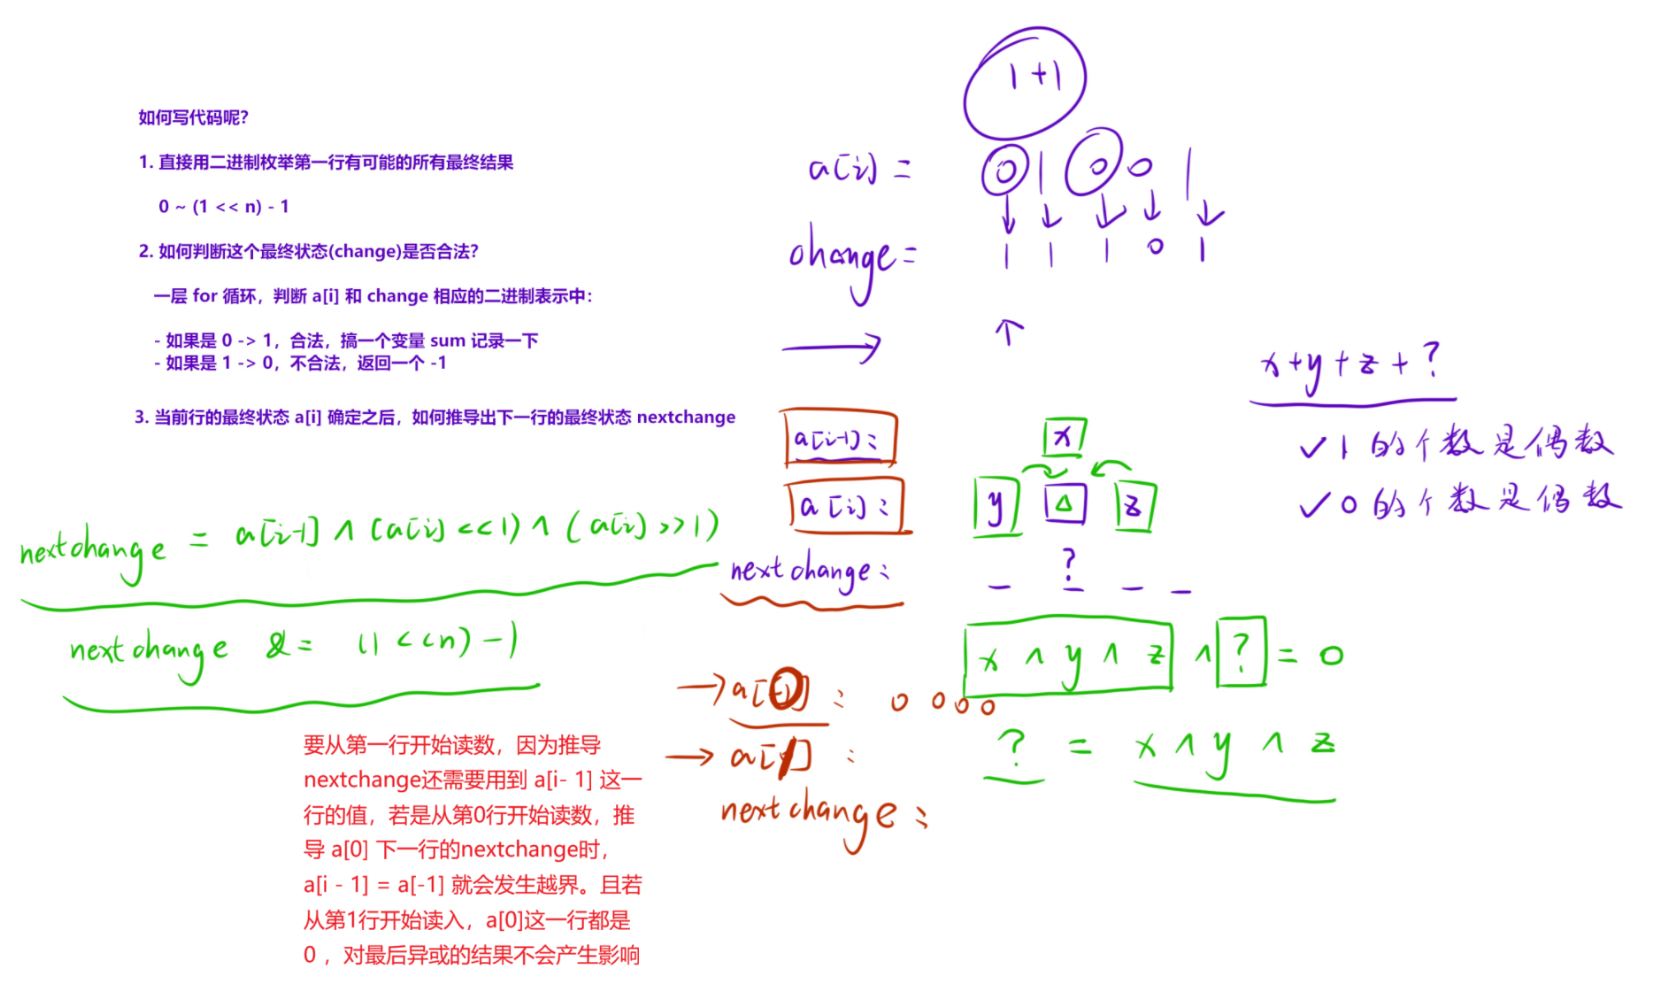 如何写代码呢？
1. 直接用二进制枚举第一行有可能的所有最终结果
0 ~ (1 << n) - 1
2. 如何判断这个最终状态(change)是否合法？
一层 for 循环，判断 a[i] 和 change 相应的二进制表示中：
- 如果是 0 -> 1，合法，搞一个变量 sum 记录一下
- 如果是 1 -> 0，不合法，返回一个 -1
3. 当前行的最终状态 a[i] 确定之后，如何推导出下一行的最终状态 nextchange
nextchange = a[i-1] ∧ (a[i] <<1) ∧ (a[i] >>1)
nextchange &= (1<<n)-1
要从第一行开始读数，因为推导
nextchange还需要用到 a[i- 1] 这一
行的值，若是从第0行开始读数，推
导 a[0] 下一行的nextchange时，
a[i - 1] = a[-1] 就会发生越界。且若
从第1行开始读入，a[0]这一行都是
0 ，对最后异或的结果不会产生影响
1+1
a[i] = 0 1 0 0 1
change = 1 1 1 0 1
a[i-1]: x
a[i]: y △ z
nextchange: ?
x ∧ y ∧ z ∧ ? = 0
a[0]: 0 0 0 0
a[1]:
? = x ∧ y ∧ z
nextchange:
x+y+z+?
✓ 1 的个数是偶数
✓ 0 的个数是偶数